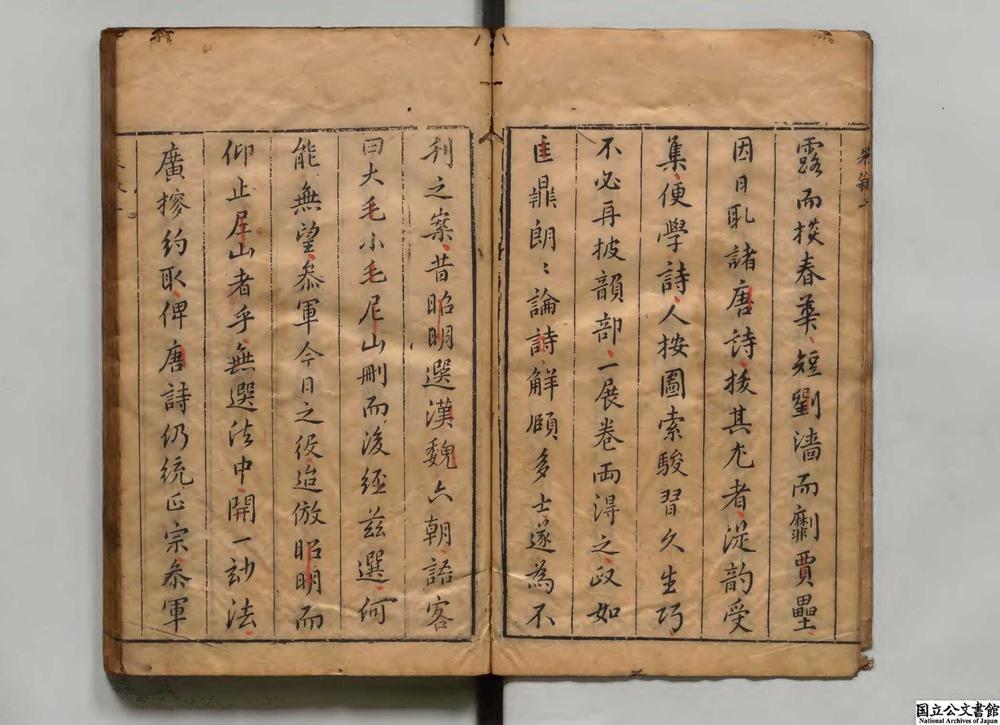 露而掞春葉短劉濇而劘賈壘
因日取諸唐詩按其尤者從韵受
集便學詩人按圖索駿習久生巧
不必再披韻部一展卷兩得之政如
匡鼎朗〻論詩解頤多士遂為不
刋之案昔昭明選漢魏六朝語客
曰大毛小毛尼山刪而後經茲選何
能無望叅軍今日之役迨倣昭明而
仰止尼山者乎無選法中開一玅法
廣摉約取俾唐詩仍統正宗叅軍
国立公文書館
National Archives of Japan